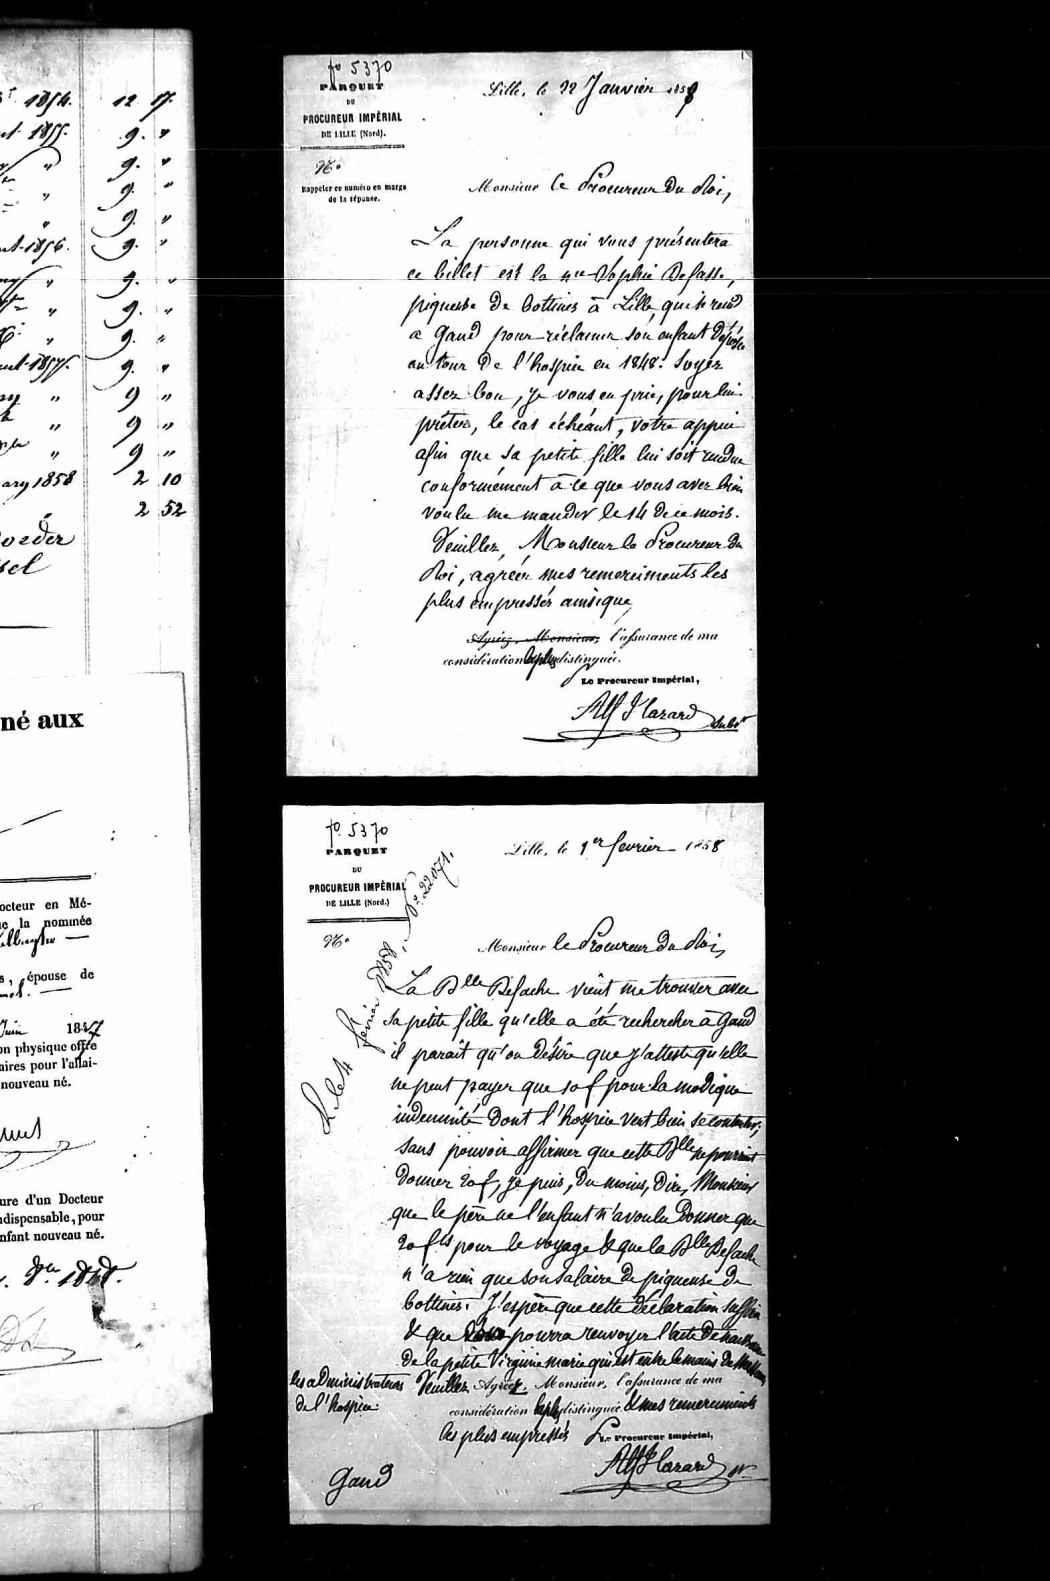 1854. 12 17.
1855. 9. "
" 9. "
" 9. "
" 9. "
1856. 9. "
" 9. "
" 9. "
" 9. "
1857. 9. "
" 9 "
" 9 "
" 9 "
ary 1858 2 10
2 52
né aux
octeur en Mé-
ue la nommée
s, épouse de
Juin 1847
on physique offre
aires pour l'allai-
nouveau né.
ure d'un Docteur
ndispensable, pour
nfant nouveau né.
fo 5370
PARQUET
DU
PROCUREUR IMPÉRIAL
DE LILLE (Nord).
No
Rappeler ce numéro en marge
de la réponse.
Lille, le 22 Janvier 1858
Monsieur le Procureur du Roi,
La personne qui vous présentera
ce billet est la nee Sophie Defasse,
piqueuse de bottines à Lille, qui se rend
à Gand pour réclamer son enfant déposé
au tour de l'hospice en 1848. Soyez
assez bon, je vous en prie, pour lui
prêter, le cas échéant, votre appui
afin que sa petite fille lui soit rendue
conformément à ce que vous avez bien
voulu me mander le 14 de ce mois.
Veuillez, Monsieur le Procureur du
Roi, agréer mes remerciments les
plus empressés ainsi que,
Agréez, Monsieur, l'assurance de ma
considération la plus distinguée.
Le Procureur Impérial,
Alf Hazard Subst
fo. 5370
PARQUET
DU
PROCUREUR IMPÉRIAL
DE LILLE (Nord.)
No
Lille, le 1er février 1858
R. le 4 février 1858, No. 22071.
Monsieur le Procureur du Roi,
La Dlle Defache vient me trouver avec
sa petite fille qu'elle a été rechercher à Gand
il paraît qu'on désire que j'atteste qu'elle
ne peut payer que 10 f pour la modique
indemnité dont l'hospice veut bien se contenter;
sans pouvoir affirmer que cette Dlle ne pourrait
donner 20 f, je puis, du moins, dire, Monsieur
que le père de l'enfant n'a voulu donner que
20 fcs pour le voyage & que la Dlle Defache
n'a rien que son salaire de piqueuse de
bottines. J'espère que cette déclaration suffira
& que pourra renvoyer l'acte de naissance
de la petite Virginie marie qui est entre les mains de Messieurs
les administrateurs
de l'hospice.
Veuillez Agréer, Monsieur, l'assurance de ma
considération la plus distinguée & mes remerciments
les plus empressés
Le Procureur Impérial,
Alf Hazard
Gand